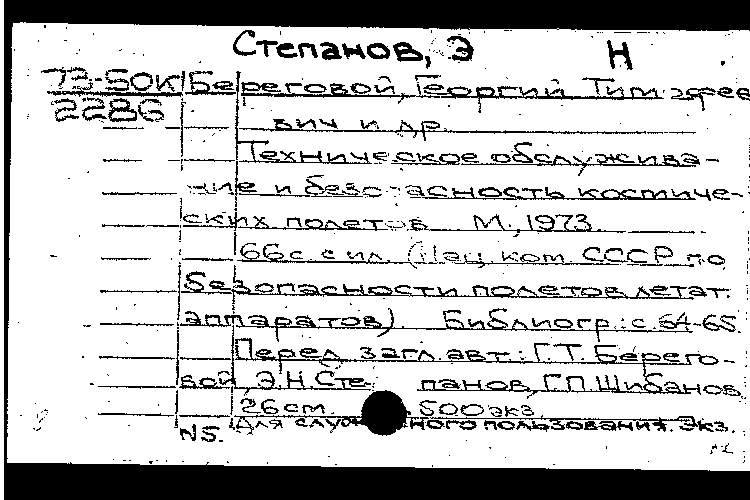 Степанов, Э Н
73-50К Береговой, Георгий Тимофее
2286
вич и др.
Техническое обслужива-
ние и безопасность космиче-
ских полетов М., 1973.
66с. с ил. (Нац. ком. СССР по
безопасности полетов летат.
аппаратов) Библиогр.: с. 64-65.
Перед загл. авт.: Г.Т. Берего-
вой, Э.Н. Сте панов, Г.П. Шибанов
26 см. 500 экз.
Для служ ного пользования. Экз.
NS.